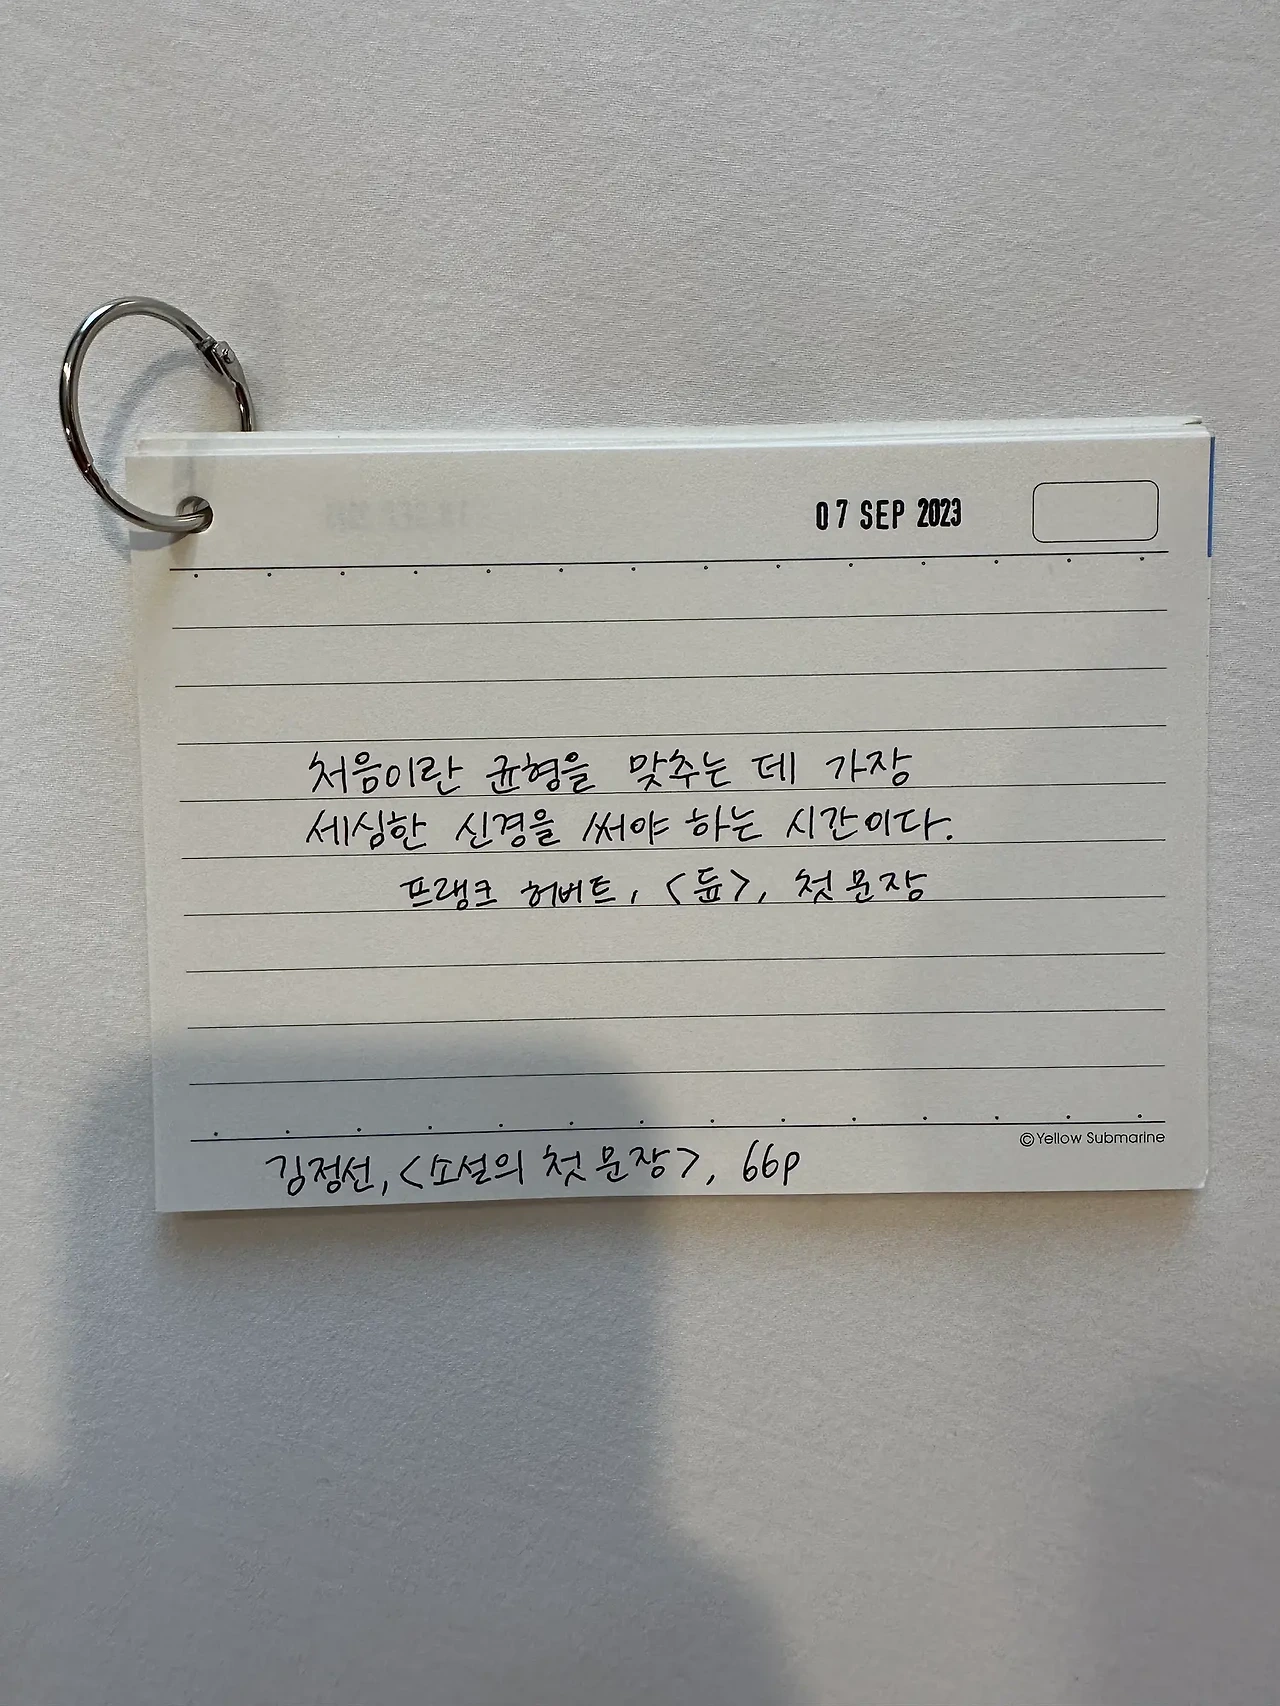 07 SEP 2023
처음이란 균형을 맞추는 데 가장
세심한 신경을 써야 하는 시간이다.
프랭크 허버트, <듄>, 첫 문장
©Yellow Submarine
김정선, <소설의 첫 문장>, 66p